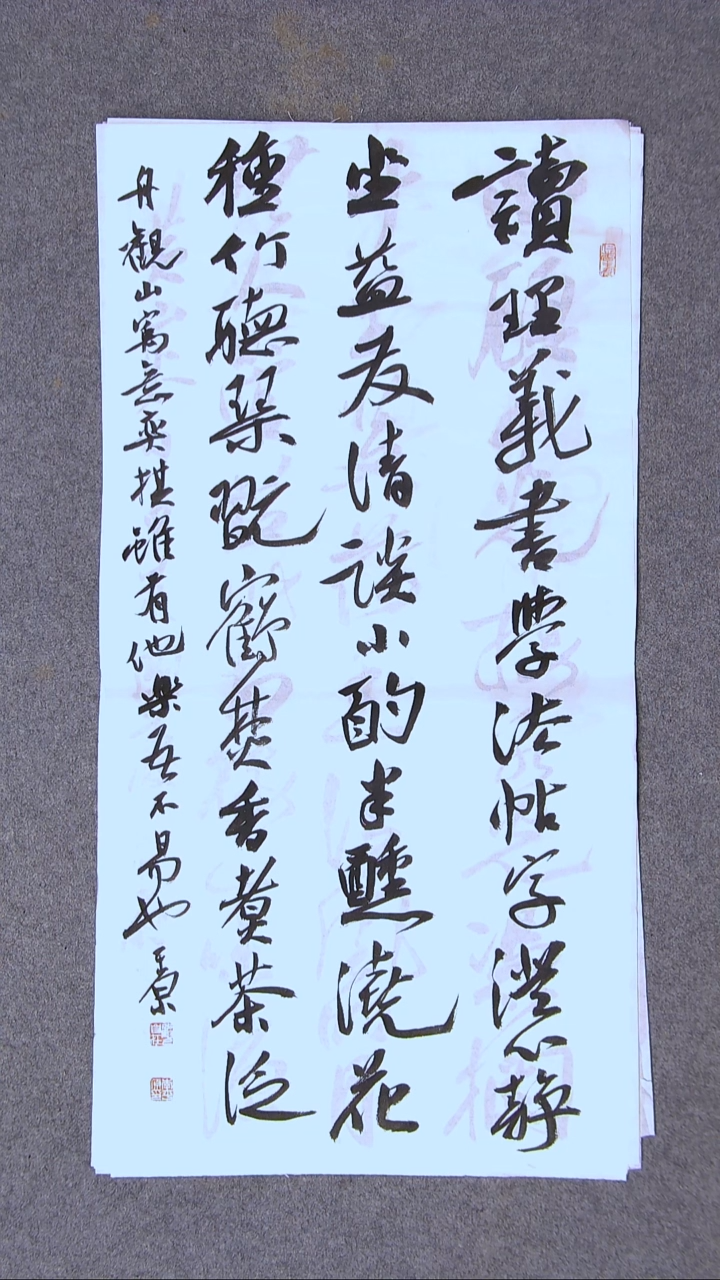 讀理義書學法帖字澄心靜
坐益友清談小酌半醺澆花
種竹聽琴翫鶴焚香煮茶泛
舟觀山寓意奕棋雖有他樂吾不易也